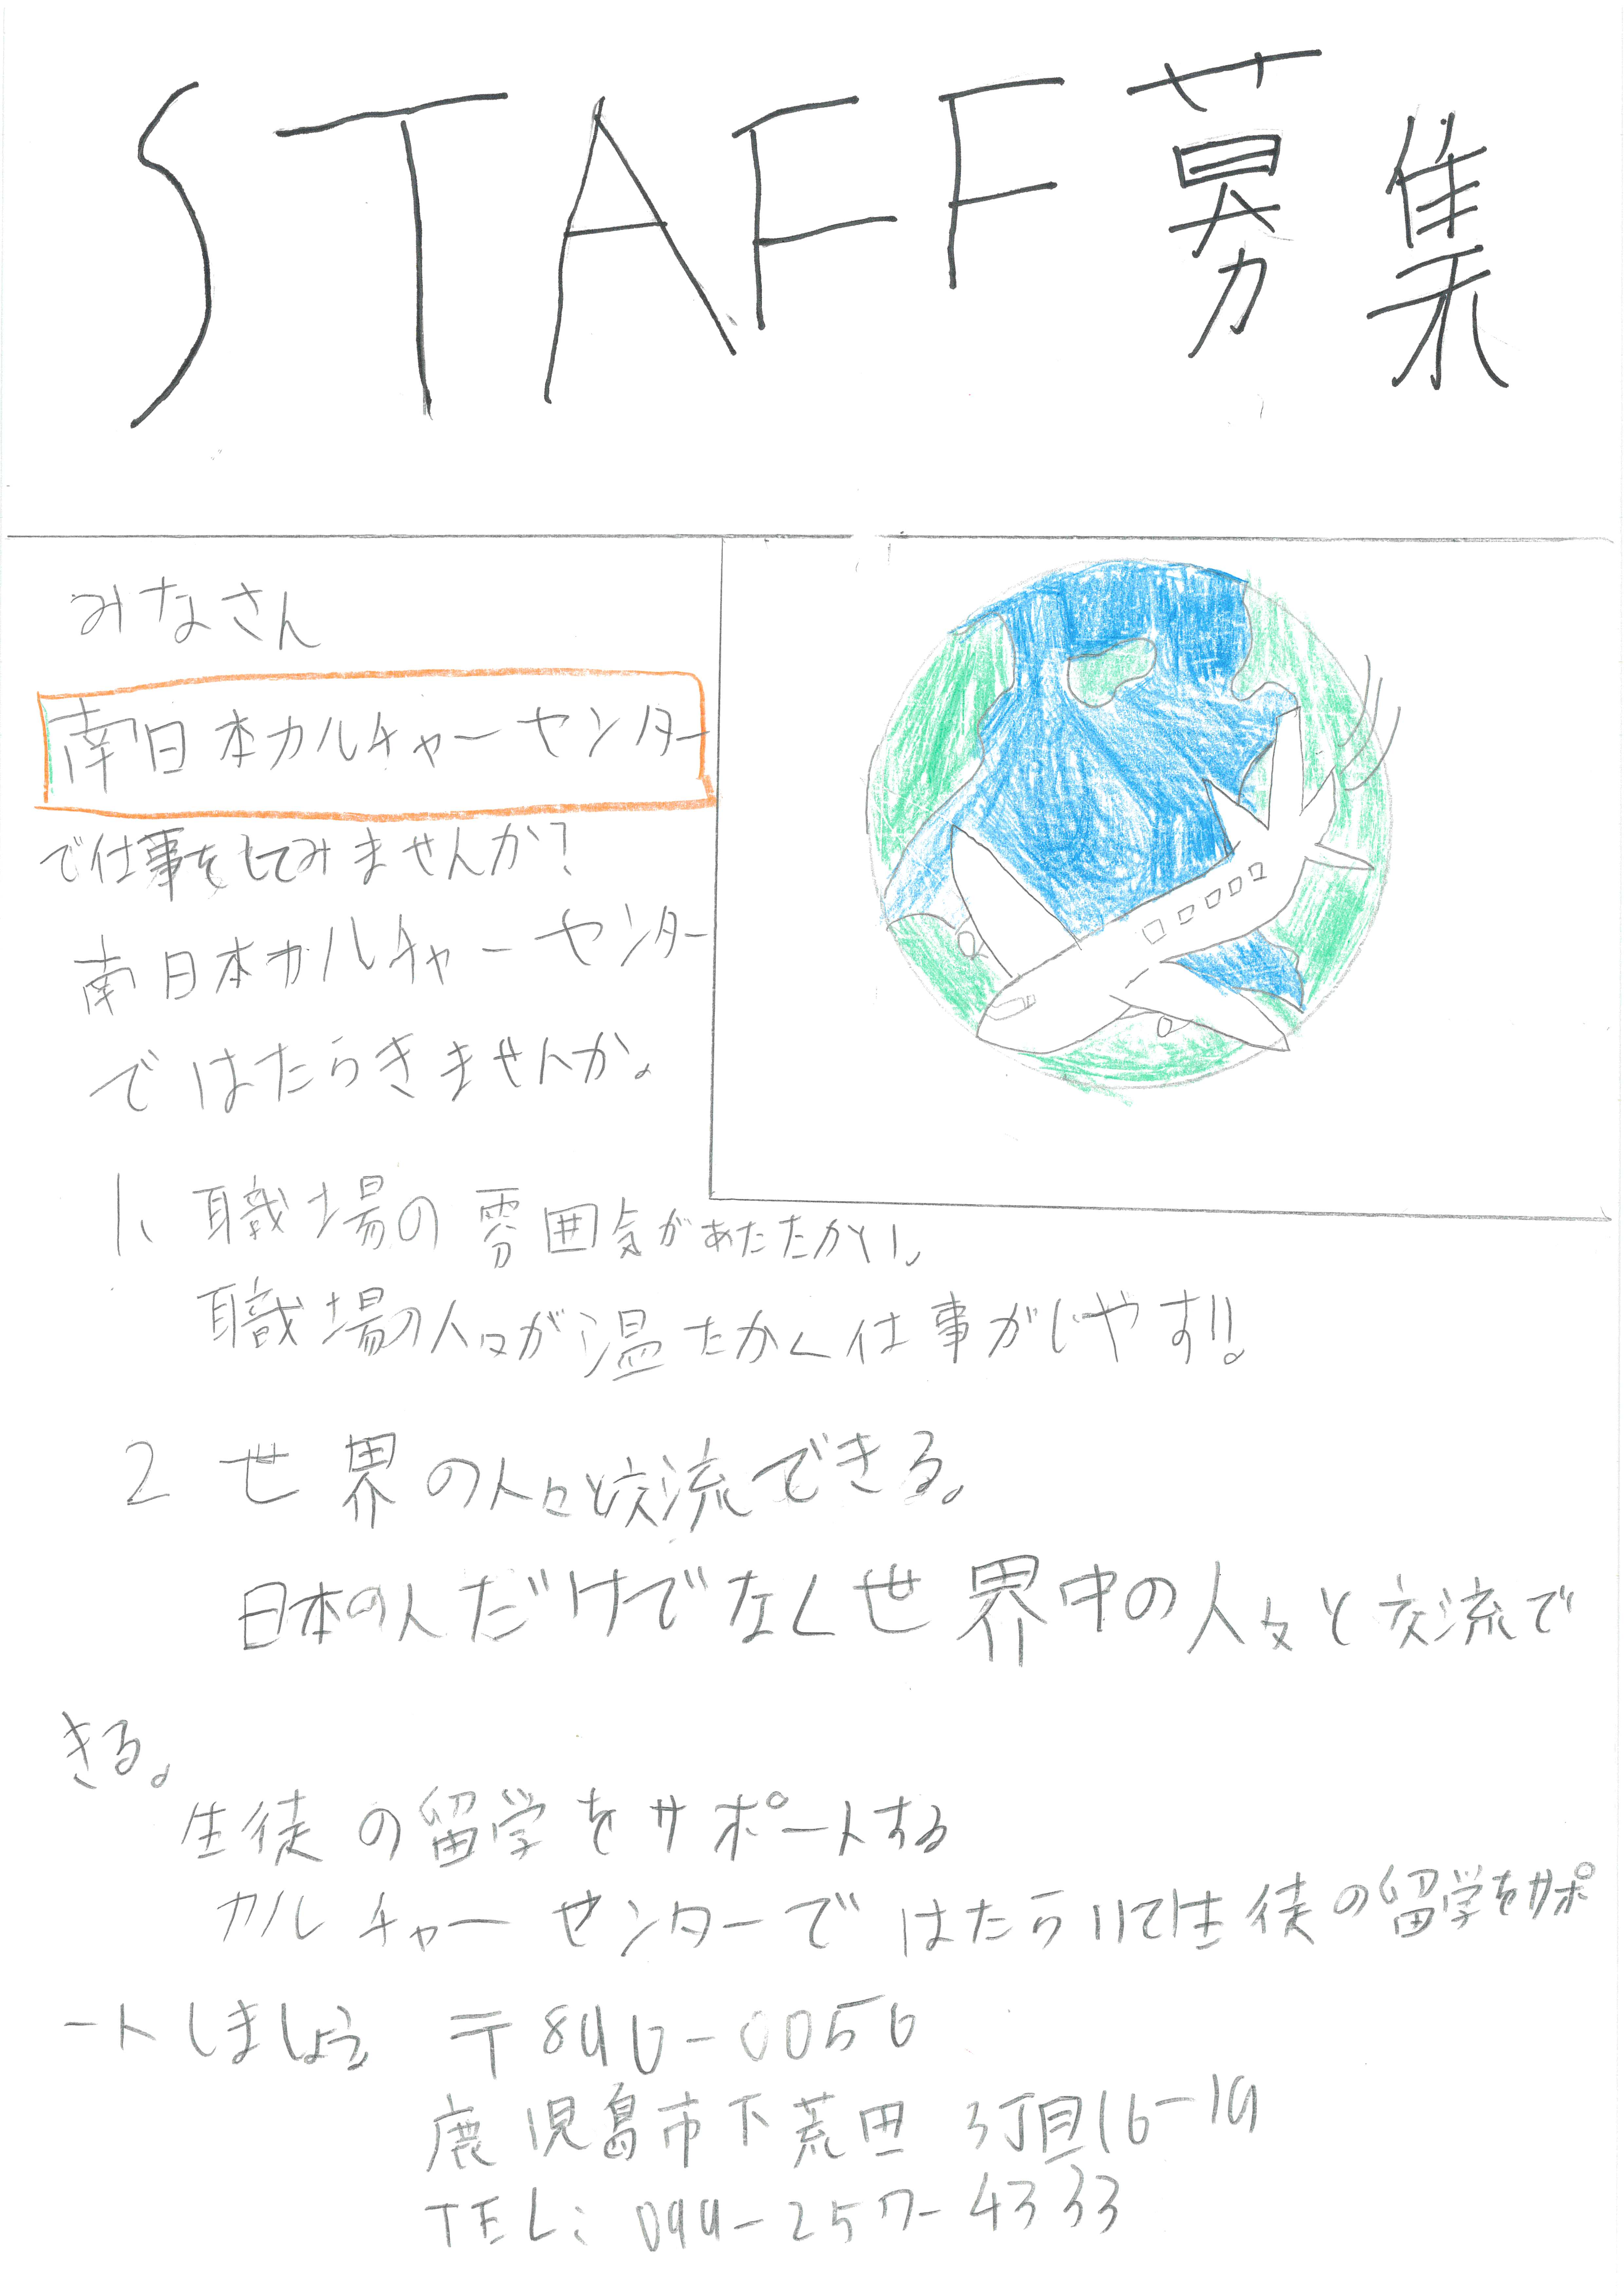 STAFF募集
みなさん
南日本カルチャーセンター
で仕事をしてみませんか?
南日本カルチャーセンター
ではたらきませんか。
1、職場の雰囲気があたたかい。
職場の人々が温たかく仕事がしやすい。
2 世界の人々と交流できる。
日本の人だけでなく世界中の人々と交流で
きる。
生徒の留学をサポートする
カルチャーセンターではたらいて生徒の留学をサポ
ートしましょう。 〒890-0056
鹿児島市下荒田 3丁目16-19
TEL: 099-257-4333